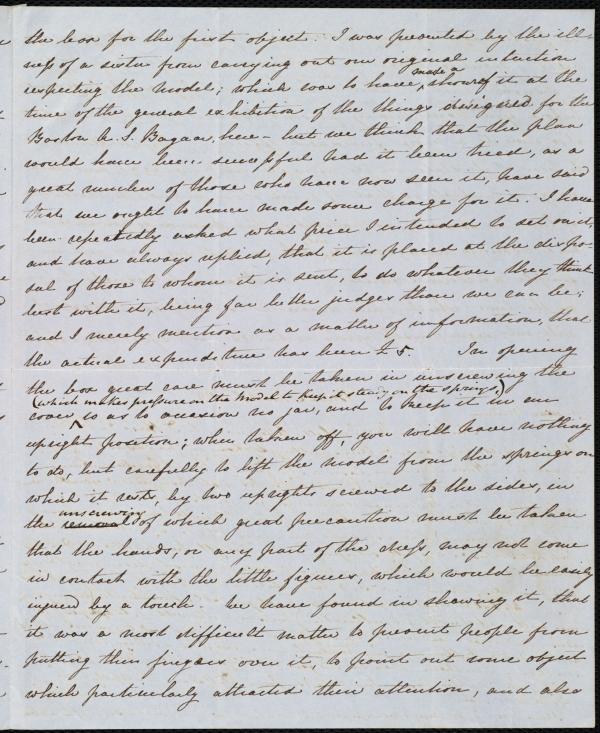 the box for the first object. I was prevented by the ill-
ness of a sister from carrying out our original intention
respecting the model; which was to have made a show of it at the
time of the general exhibition of the things designed for the
Boston A. S. Bazaar, here - but we think that the plan
would have been successful had it been tried, as a
great number of those who have now seen it, have said
that we ought to have made some charge for it. I have
been repeatedly asked what price I intended to set on it,
and have always replied, that it is placed at the dispo-
sal of those to whom it is sent, to do whatever they think
best with it, being far better judges than we can be;
and I merely mention as a matter of information, that
the actual expenditure has been £5. In opening
the box great care must be taken in unscrewing the
(which makes pressure on the model to keep it steady on the springs,)
cover, so as to occasion no jar, and to keep it in an
upright position; when taken off, you will have nothing
to do, but carefully to lift the model from the springs on
which it rests, by two uprights screwed to the sides, in
unscrewing
the removal of which great precaution must be taken
that the hands, or any part of the dress, may not come
in contact with the little figures, which would be easily
injured by a touch. We have found in shewing it, that
it was a most difficult matter to prevent people from
putting their fingers over it, to point out some object
which particularly attracted their attention, and also